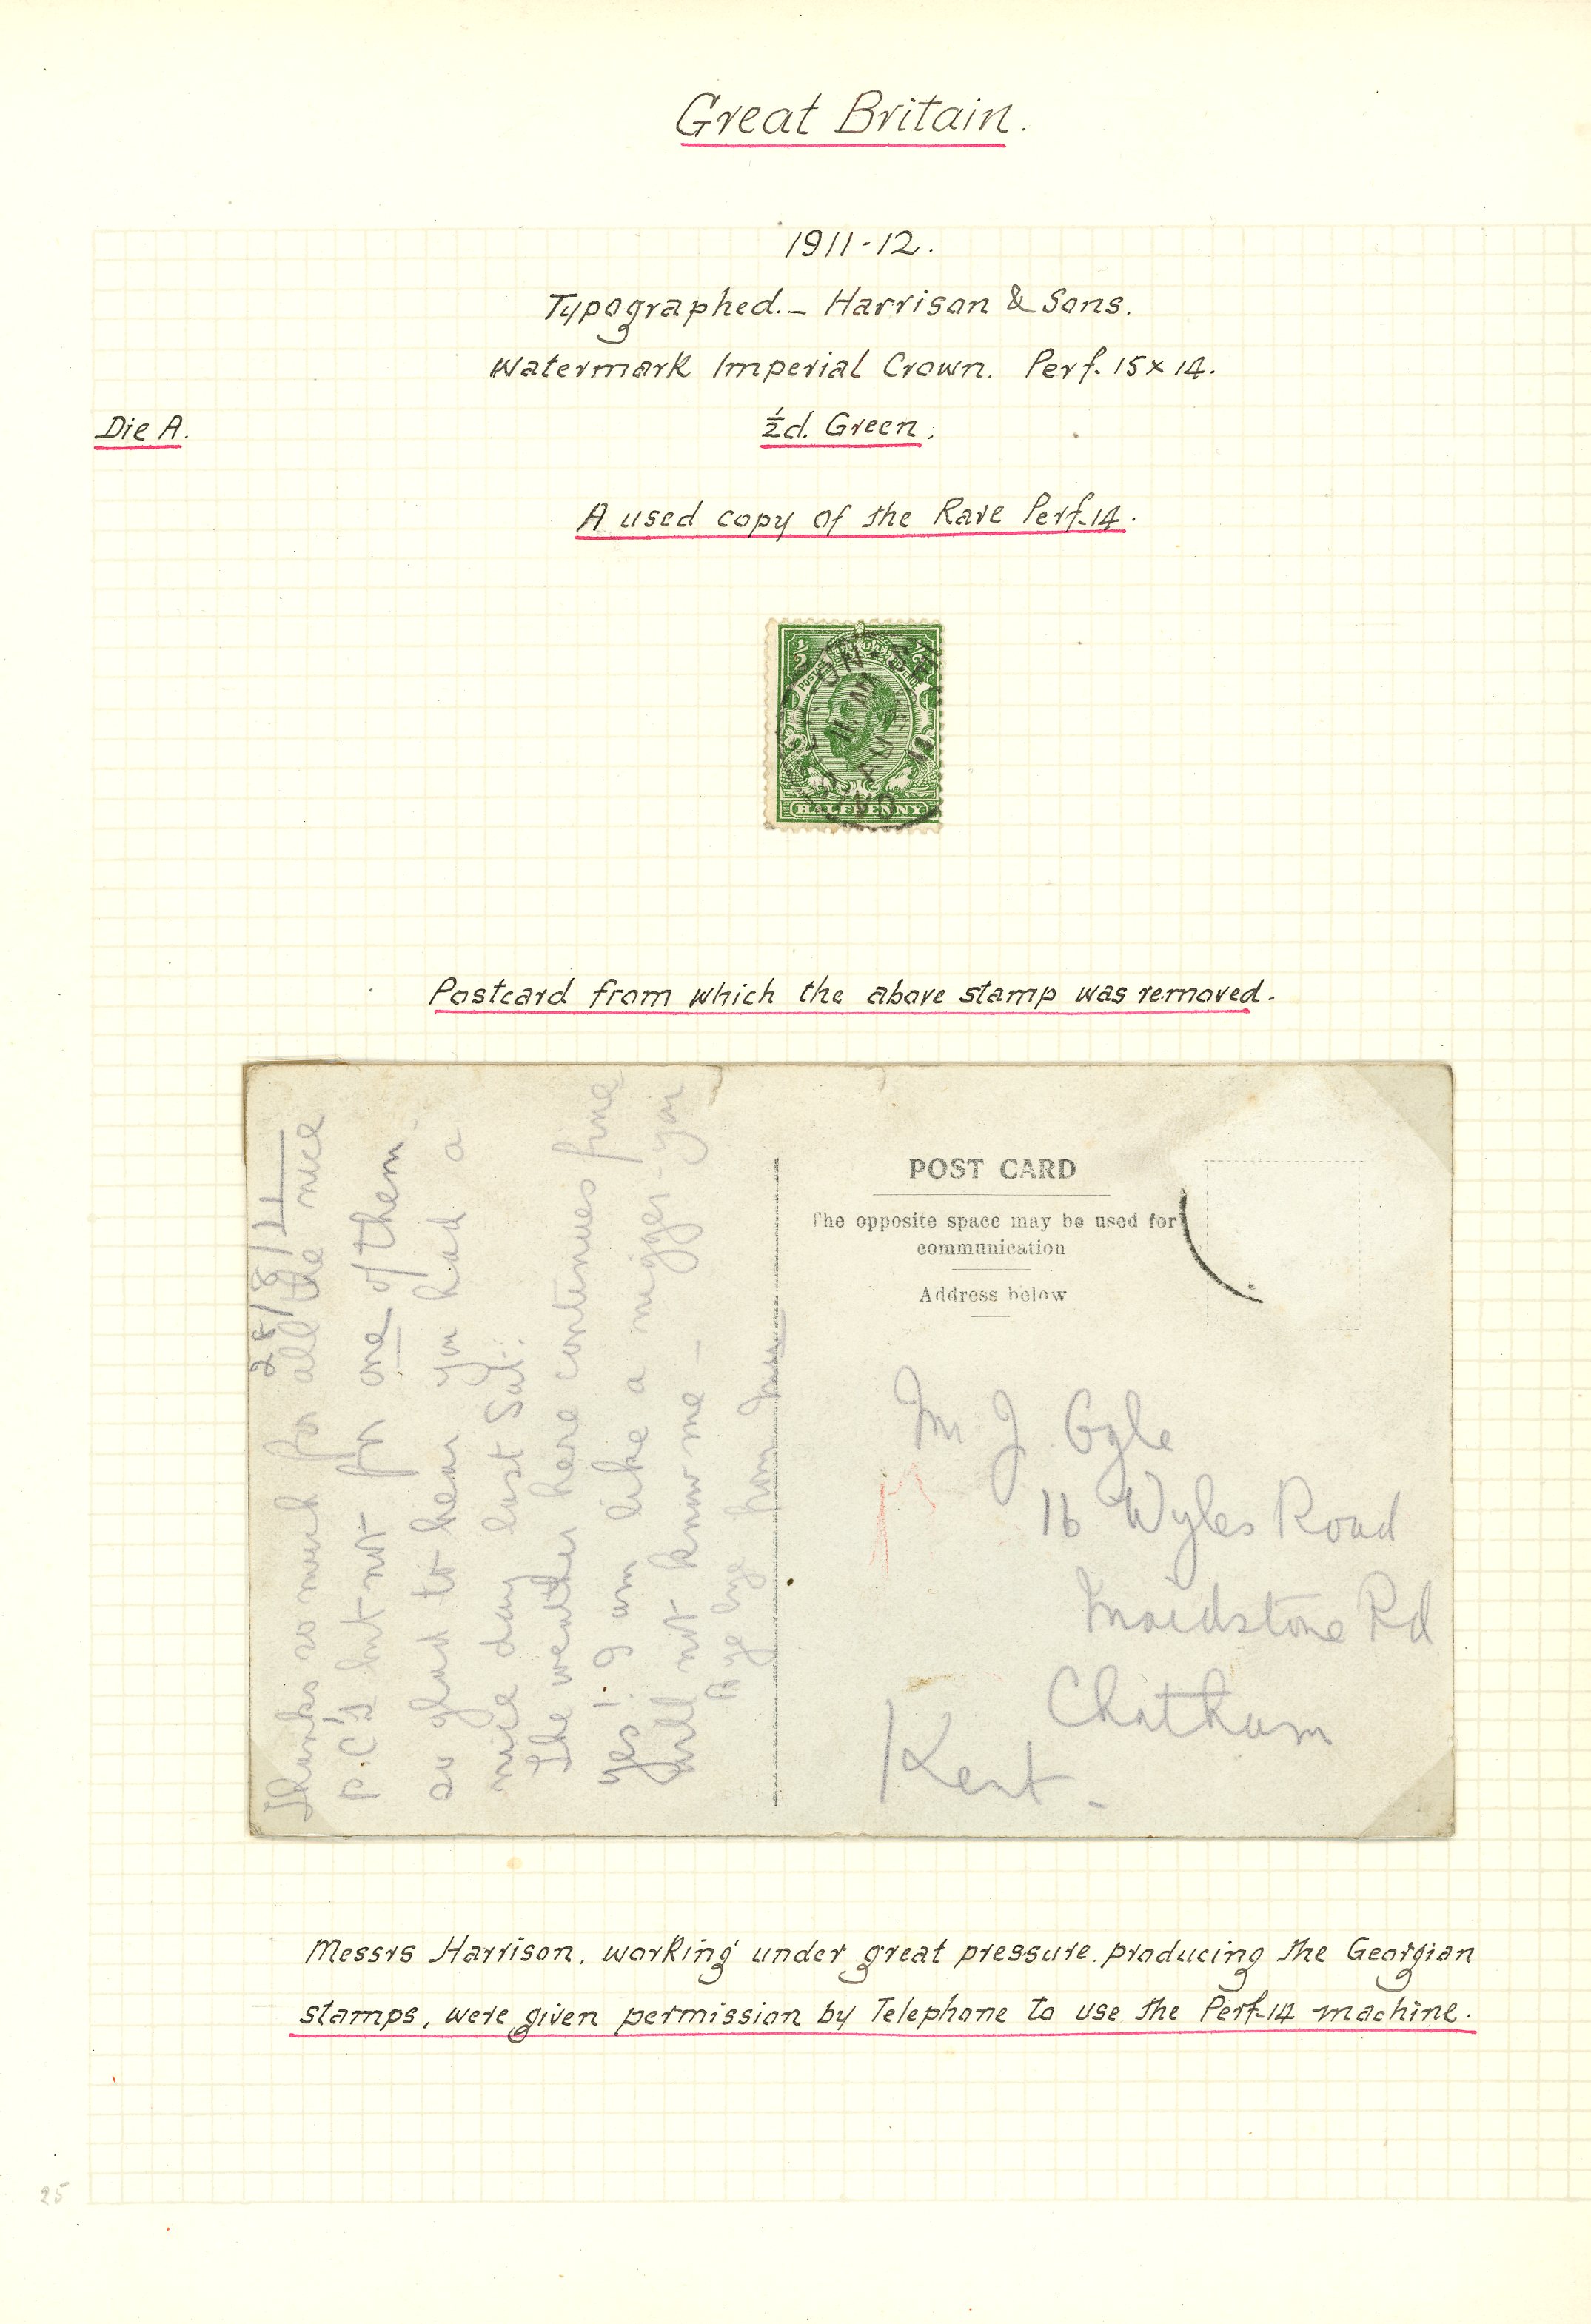 Great Britain.
1911-12.
Typographed. - Harrison & Sons.
Watermark Imperial Crown. Perf. 15 x 14.
Die A.
½d. Green.
A used copy of the Rare Perf. 14.
½ ½
POSTAGE REVENUE
ON · SE
11. AM
AU
HALFPENNY
Postcard from which the above stamp was removed.
28/8/14
Thanks so much for all the nice
p.c's but not for one of them.
so glad to hear you had a
nice day last Sat.
The weather here continues fine
yes! I am like a nigger - you
will not know me -
Bye bye from
POST CARD
The opposite space may be used for
communication
Address below
J. Ogle
16 Wyles Road
Maidstone Rd
Chatham
Kent.
Messrs Harrison, working under great pressure, producing the Georgian
stamps, were given permission by Telephone to use the Perf-14 machine.
25